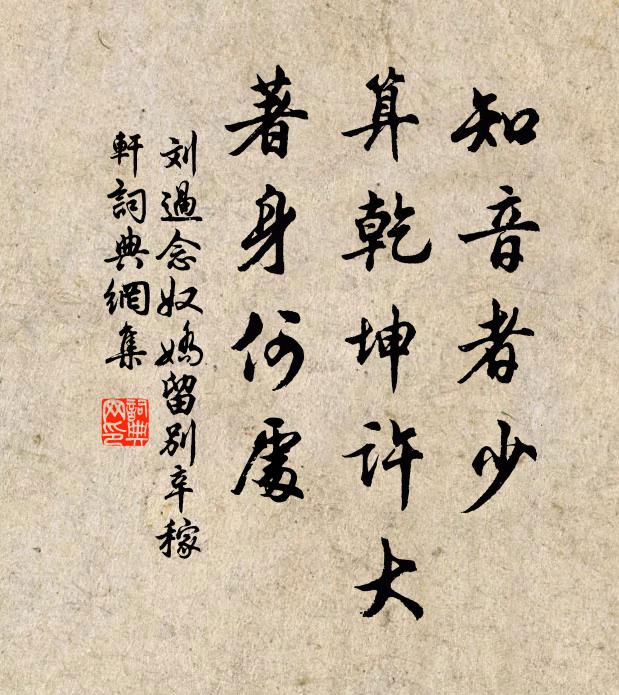 知音者少
算乾坤许大
著身何處
刘過念奴嬌留别辛稼
軒詞典網集
詞典
网印